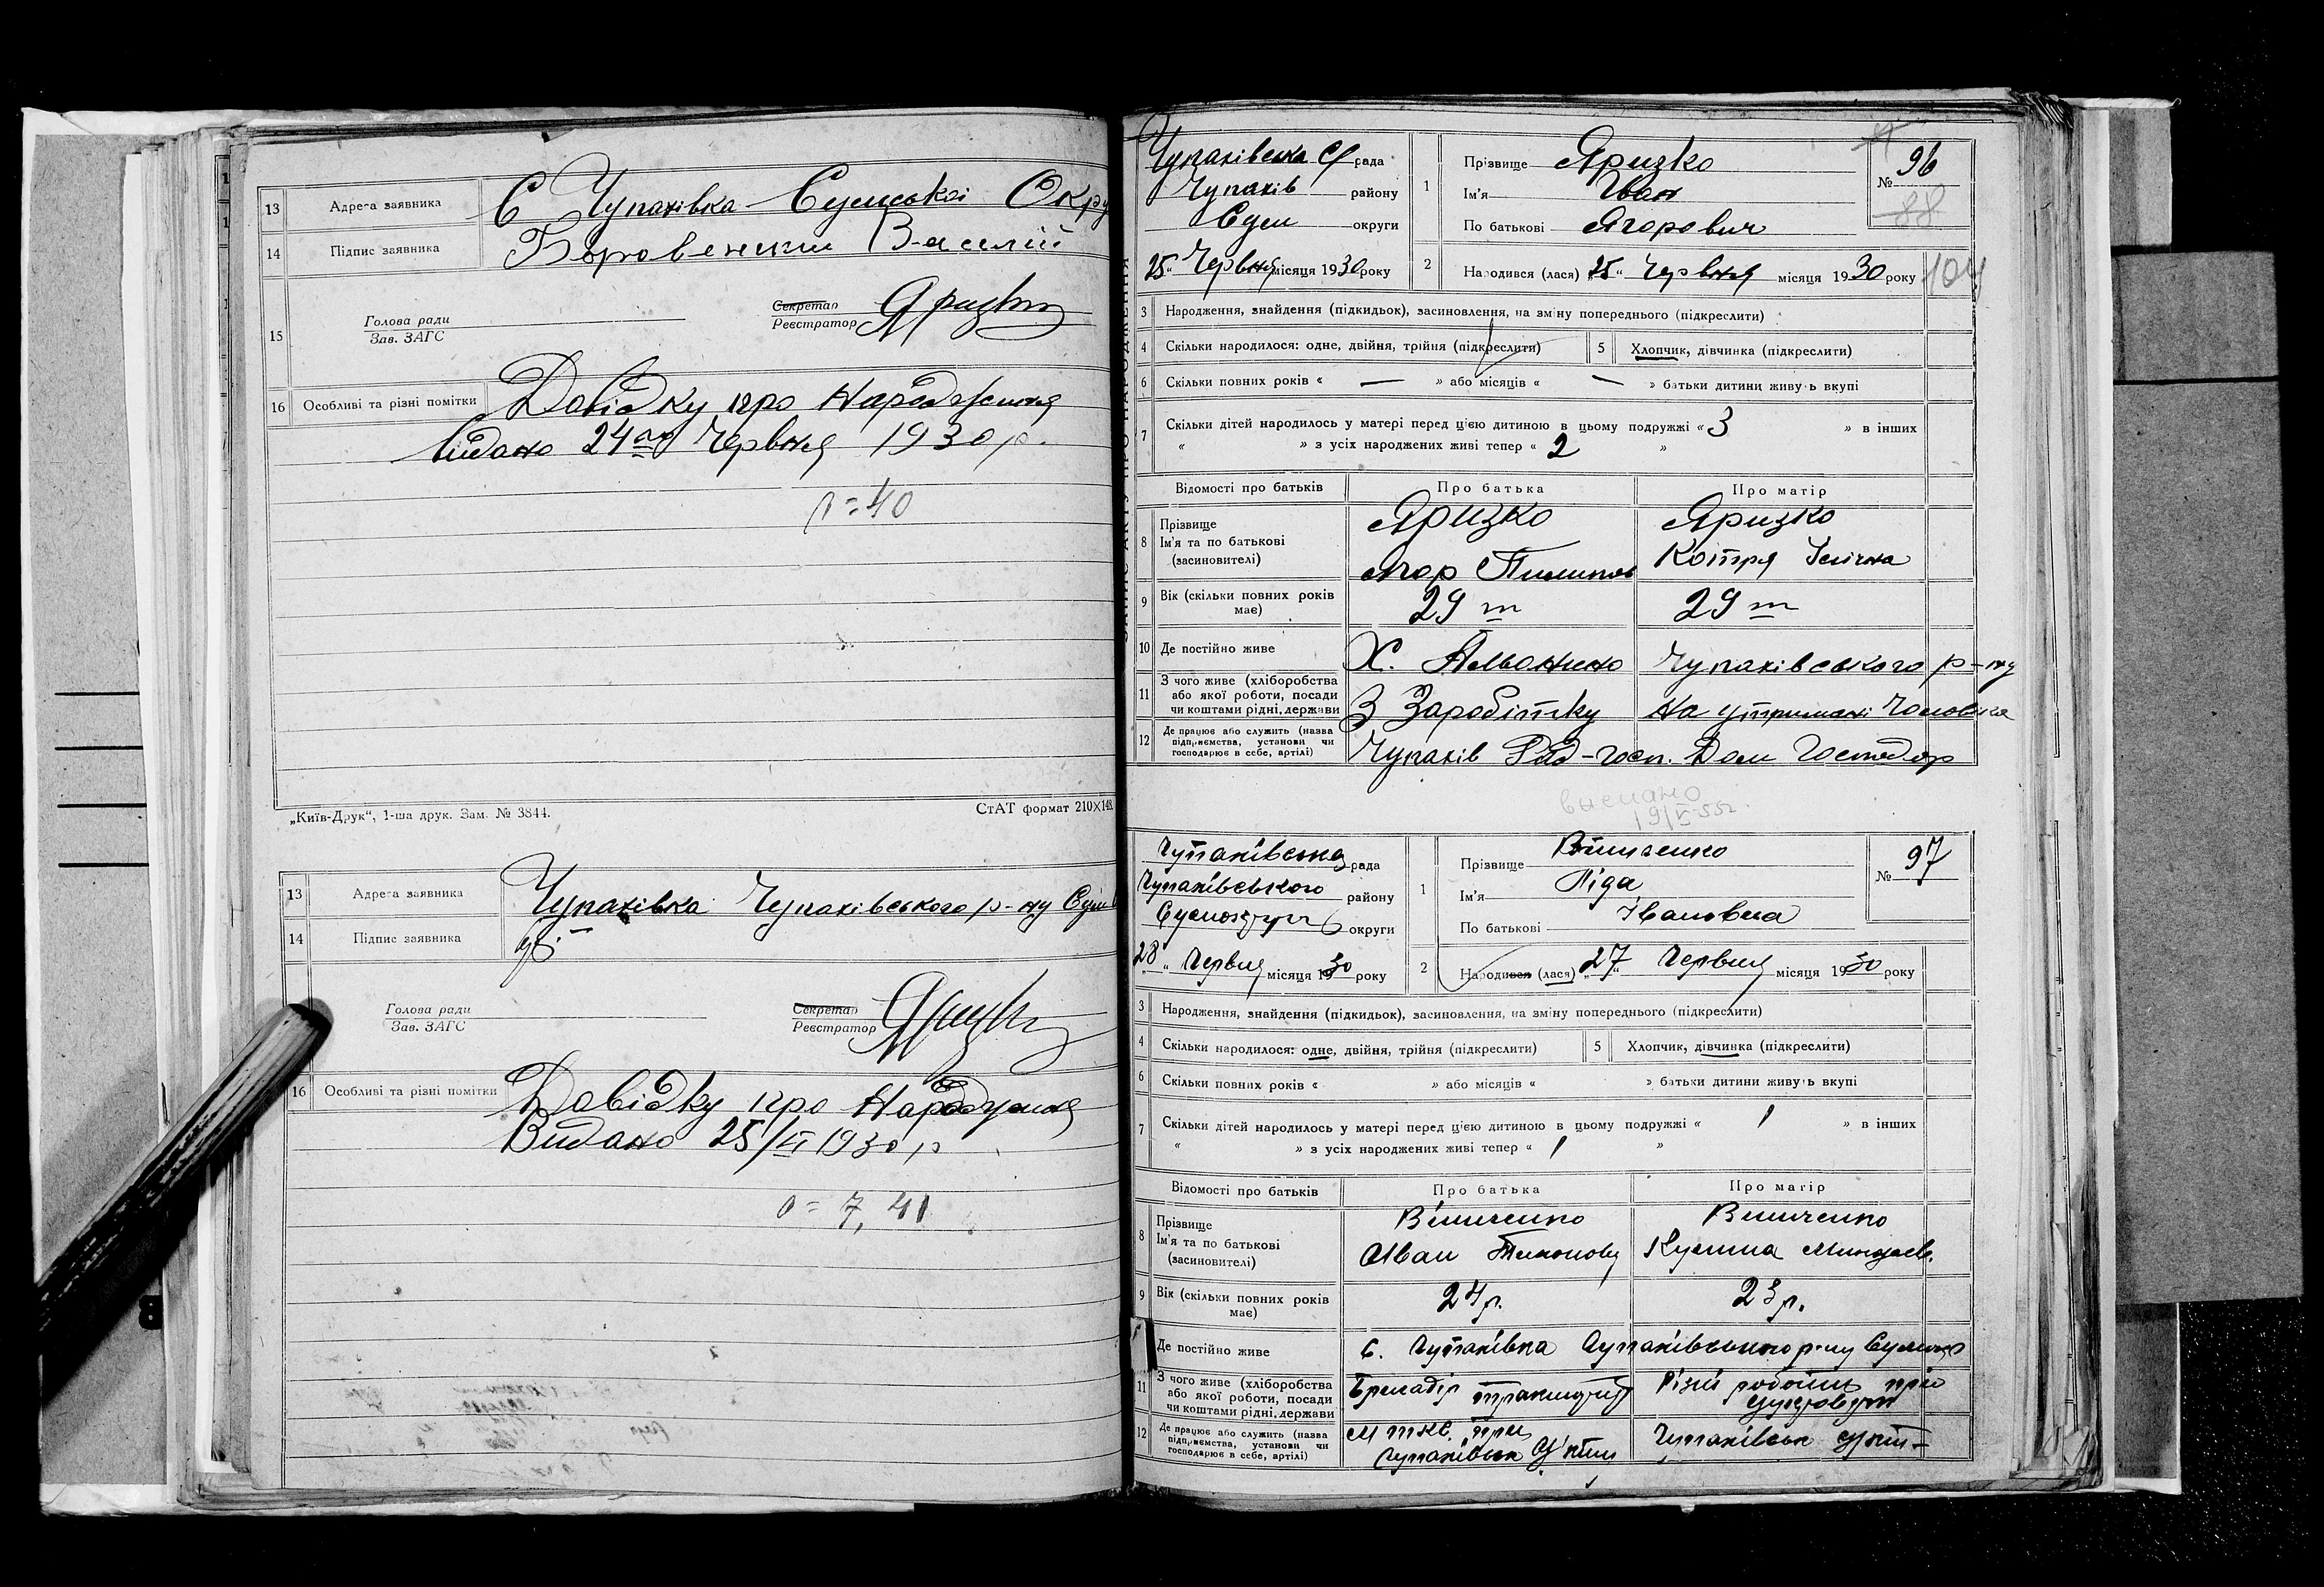 13 Адреса заявника С Чупахівка Сумської Окру
14 Підпис заявника Боровенський Василій
15 Голова ради Зав. ЗАГС Секретар Реєстратор Яризко
16 Особливі та різні помітки Довідку про Народження
видано 24го Червня 1930 р.
п=40
„Київ-Друк“, 1-ша друк. Зам. № 3844. СтАТ формат 210×148.
13 Адреса заявника Чупахівка Чупахівського р-ну Сум
14 Підпис заявника
Голова ради Зав. ЗАГС Секретар Реєстратор Яризко
16 Особливі та різні помітки Довідку про Народження
Видано 25/VI 1930 р
п=7, 41
Чупахівська С/ рада
Чупахів району
Сум округи
25 „ Червня місяця 1930 року
1 Прізвище Яризко
Ім'я Іван
По батькові Ягорович
№ 96
88
104
2 Народився (лася) 25 “ Червня місяця 1930 року
3 Народження, знайдення (підкидьок), засиновлення, на зміну попереднього (підкреслити)
4 Скільки народилося: одне, двійня, трійня (підкреслити) 5 Хлопчик, дівчинка (підкреслити)
6 Скільки повних років « — » або місяців « — » батьки дитини живуть вкупі
7 Скільки дітей народилось у матері перед цією дитиною в цьому подружжі « 3 » в інших
« » з усіх народжених живі тепер « 2 »
Відомості про батьків Про батька Про матір
8 Прізвище Яризко Яризко
Ім'я та по батькові (засиновителі) Ягор Пилипов Котря Іллічна
9 Вік (скільки повних років має) 29 т 29 т
10 Де постійно живе Х. Чупахівського р-ну
11 З чого живе (хліборобства або якої роботи, посади чи коштами рідні, держави З Заробітку На утримані Чоловіка
12 Де працює або служить (назва підприємства, установи чи господарює в себе, артілі) Чупахів Рад-госп. Дом Господар
выслано
19/V-55г.
Чупахівська рада
Чупахівського району
округи
28 „ Червня місяця 1930 року
1 Прізвище Вініченко
Ім'я Ліда
По батькові Івановна
№ 97
2 Народився (лася) „27“ Червня місяця 1930 року
3 Народження, знайдення (підкидьок), засиновлення, на зміну попереднього (підкреслити)
4 Скільки народилося: одне, двійня, трійня (підкреслити) 5 Хлопчик, дівчинка (підкреслити)
6 Скільки повних років « » або місяців « » батьки дитини живуть вкупі
7 Скільки дітей народилось у матері перед цією дитиною в цьому подружжі « 1 » в інших
« » з усіх народжених живі тепер « 1 »
Відомості про батьків Про батька Про матір
8 Прізвище Вініченко Вініченко
Ім'я та по батькові (засиновителі) Іван
9 Вік (скільки повних років має) 24 р. 23 р.
Де постійно живе с. Чупахівка Чупахівського р-ну
11 З чого живе (хліборобства або якої роботи, посади чи коштами рідні, держави Бригадір
12 Де працює або служить (назва підприємства, установи чи господарює в себе, артілі) М т к с. при